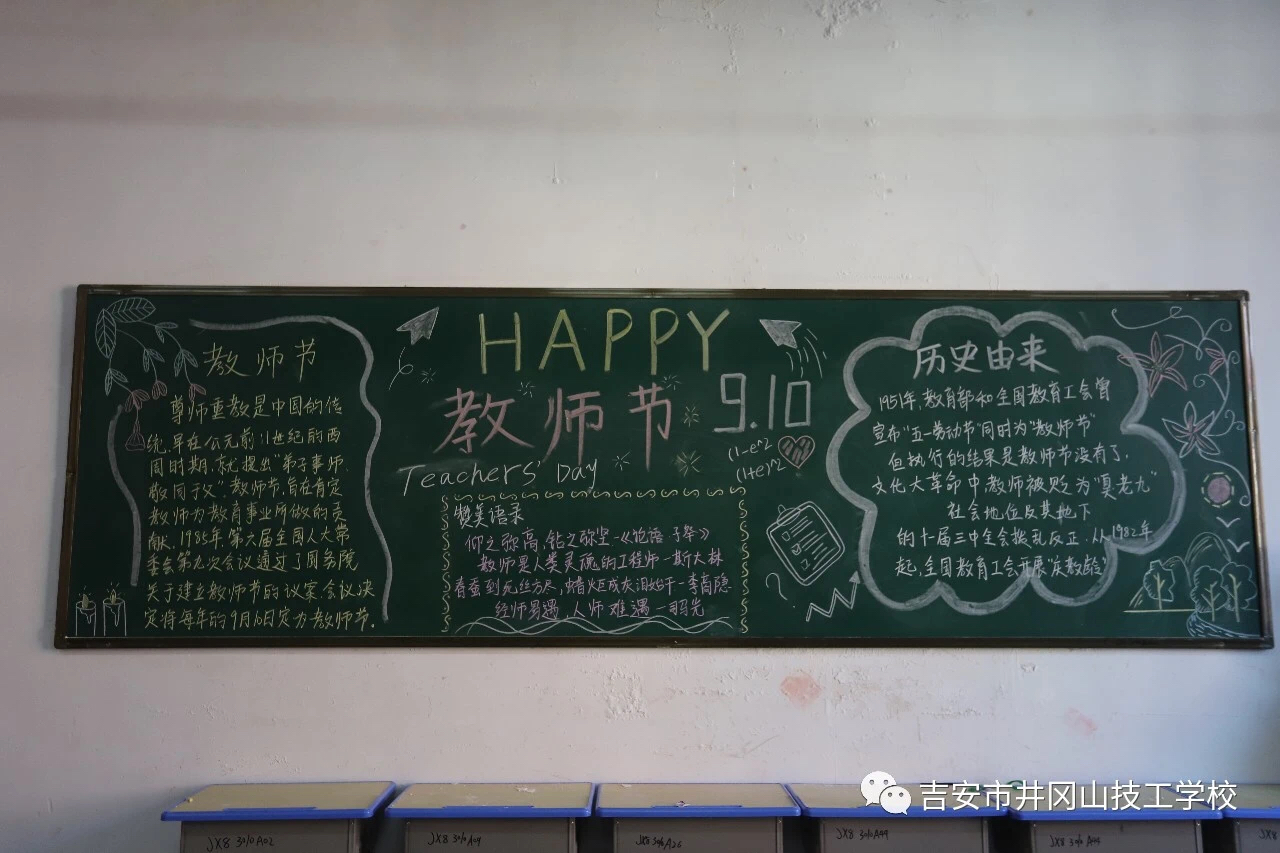 教师节
尊师重教是中国的传
统,早在公元前11世纪的西
周时期,就提出"弟子事师.
敬同于父".教师节,旨在肯定
教师为教育事业所做的贡
献,1985年,第六届全国人大常
委会第九次会议通过了国务院
关于建立教师节的议案会议决
定将每年的9月10日定为教师节.
HAPPY
教师节 9.10
Teachers' Day
赞美语录
仰之弥高,钻之弥坚-《论语·子罕》
教师是人类灵魂的工程师-斯大林
春蚕到死丝方尽,蜡炬成灰泪始干-李商隐
经师易遇,人师难遇-
历史由来
1951年,教育部和全国教育工会曾
宣布"五一劳动节"同时为"教师节"
但执行的结果是教师节没有了,
文化大革命中,教师被贬为"臭老九"
社会地位及其地下
的十届三中全会拨乱反正,从1982年
起,全国教育工会开展"庆教龄"
JX8 3010A02
JX8
JX8
JX8
JX8
吉安市井冈山技工学校